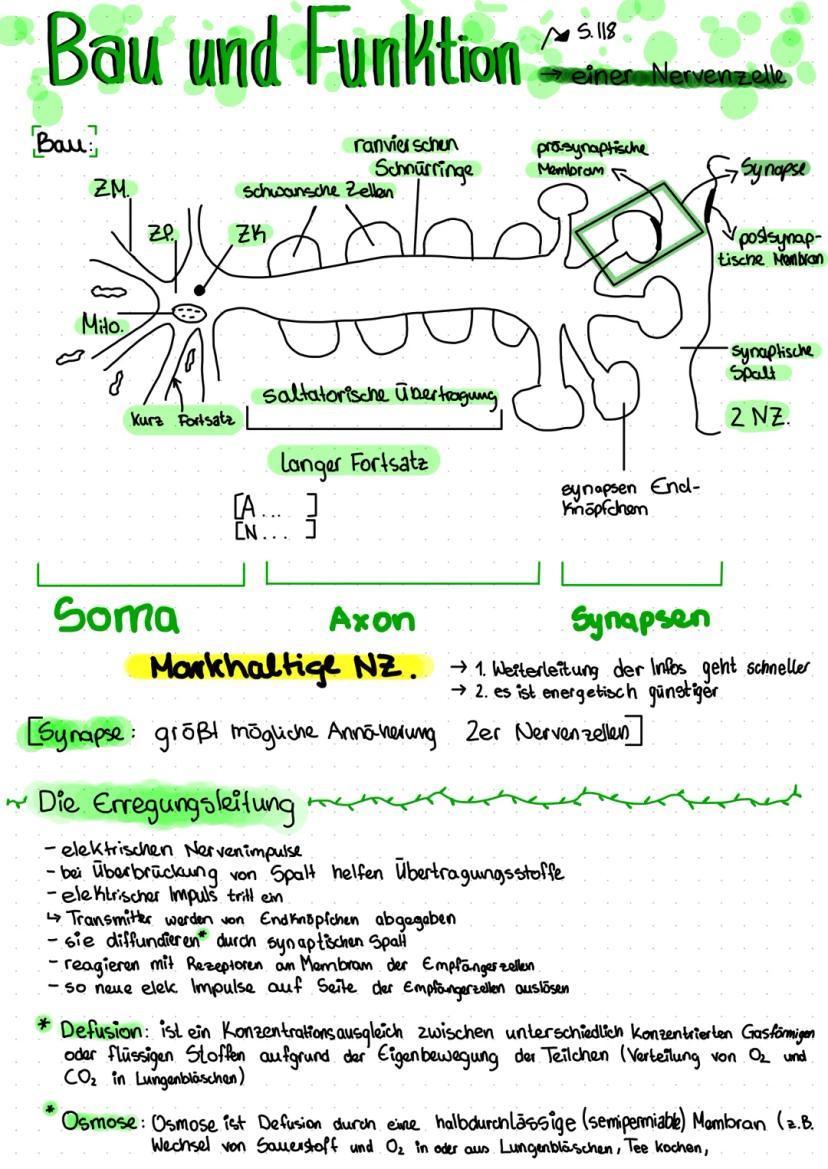 Bau und Funktion
S. 118
→ einer Nervenzelle
[Bau:]
ranvierschen
Schnürringe
präsynaptische
Membram
Synapse
ZM.
schwansche Zellen
ZP.
ZK
postsynap-
tische Membran
Mito.
synaptische
Spalt
saltatorische Übertragung
Kurz Fortsatz
2 NZ.
langer Fortsatz
synapsen End-
Knöpfchem
[A... ]
[N... ]
Soma
Axon
Synapsen
Markhaltige NZ.
→ 1. Weiterleitung der Infos geht schneller
→ 2. es ist energetisch günstiger
[Synapse: größt mögliche Annäherung 2er Nervenzellen]
Die Erregungsleitung
- elektrischen Nervenimpulse
- bei Überbrückung von Spalt helfen Übertragungsstoffe
- elektrischer Impuls tritt ein
↳ Transmitter werden von Endknöpfchen abgegeben
- sie diffundieren* durch synaptischen Spalt
- reagieren mit Rezeptoren am Membram der Empfängerzellen
- so neue elek. Impulse auf Seite der Empfängerzellen auslösen
* Defusion: ist ein Konzentrationsausgleich zwischen unterschiedlich Konzentrierten Gasförmigen
oder flüssigen Stoffen aufgrund der Eigenbewegung der Teilchen (Verteilung von O₂ und
CO₂ in Lungenbläschen)
* Osmose: Osmose ist Defusion durch eine halbdurchlässige (semipermiable) Membran (z.B.
Wechsel von Sauerstoff und O₂ in oder aus Lungenbläschen, Tee kochen,